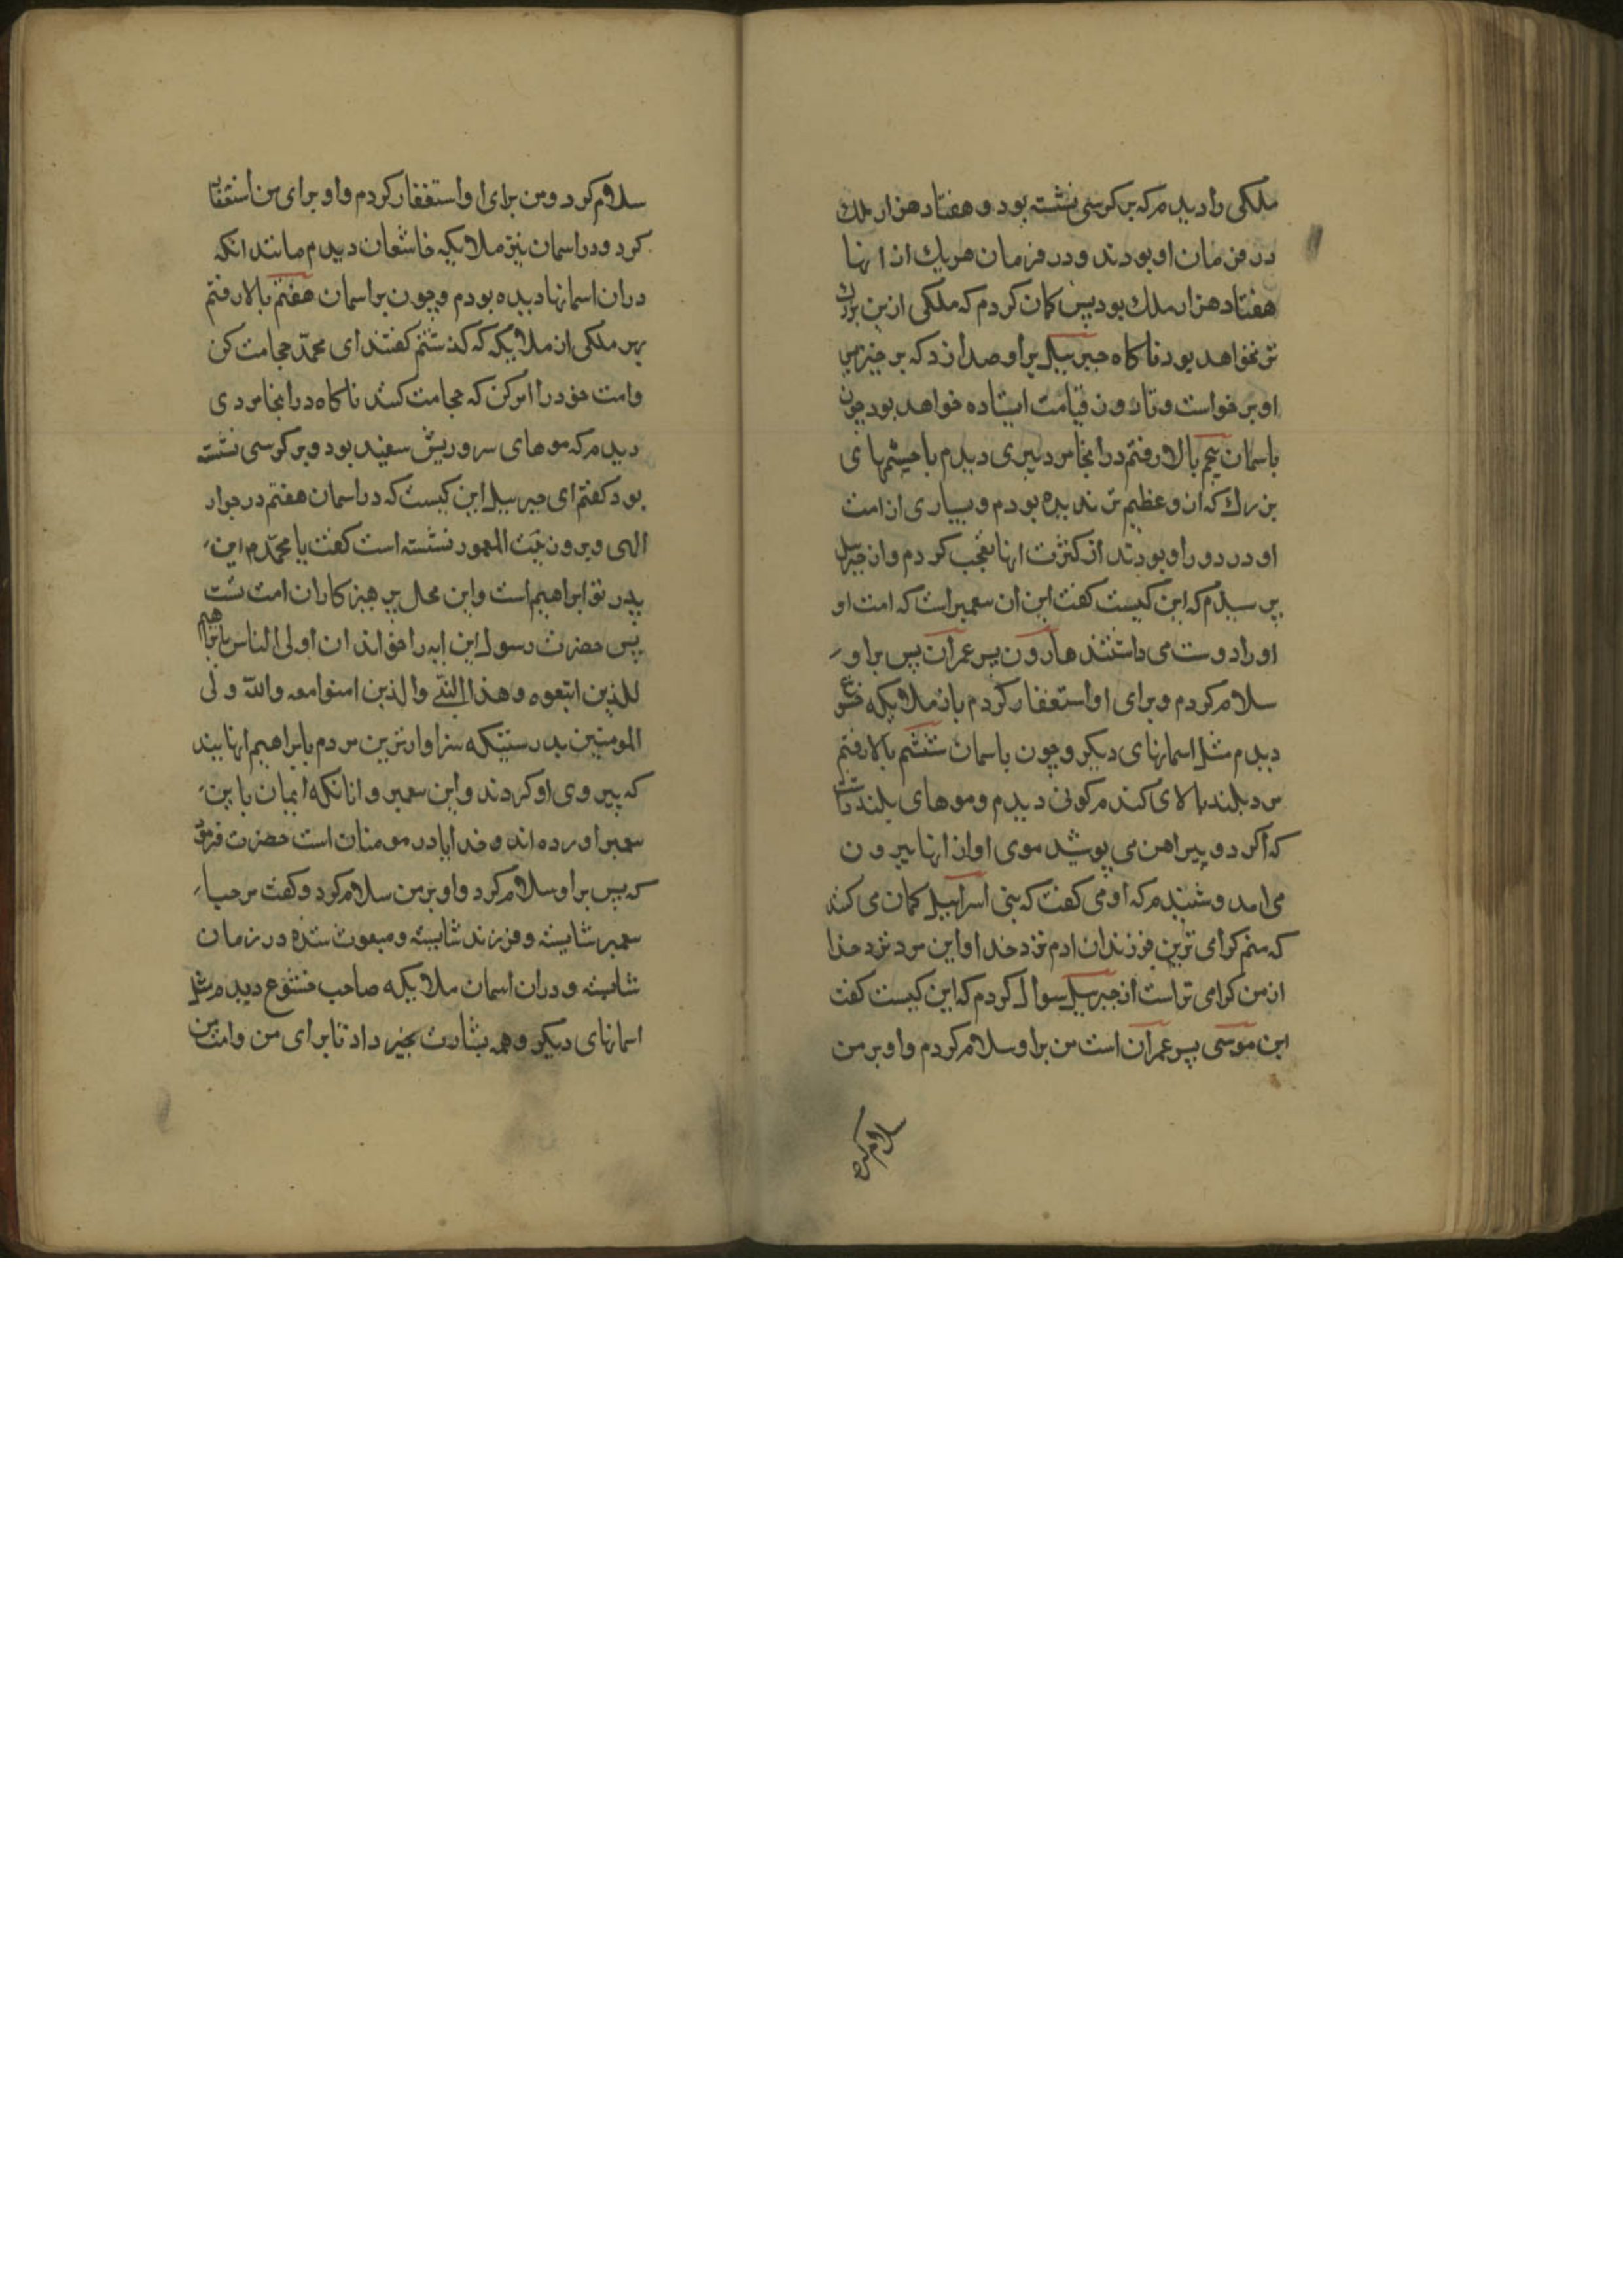 ملکی را دیدم که بر کرسی نشسته بود و هفتاد هزار ملك
در فرمان او بودند و در فرمان هر یك از انها
هفتاد هزار ملك بود پس کمان کردم که ملکی ازین بزرك
تر نخواهد بود ناکاه جبرییل بر او صدا زد که بر خیز پس
او بر خواست و تا روز قیامت ایستاده خواهد بود چون
باسمان پنجم بالا رفتم در انجا مرد پیری دیدم با چشمهای
بزرك که ازو عظیم تر ندیده بودم و بسیاری از امت
او در دور او بودند از کثرت انها تعجب کردم و از جبرییل
پرسیدم که این کیست کفت این ان پیغمبر است که امت او
او را دوست می داشتند هارون پسر عمران پس بر او
سلام کردم و برای او استغفار کردم باز ملایکه خشوع
دیدم مثل اسمانهای دیکر و چون باسمان ششم بالا رفتم
مرد بلند بالای کندم کونی دیدم و موهای بلند داشت
که اکر دو پیراهن می پوشید موی او از انها بیرون
می امد و شنیدم که او می کفت که بنی اسراییل کمان می کنند
که منم کرامی ترین فرزندان ادم نزد خدا و این مرد نزد خدا
از من کرامی تر است از جبرییل سوال کردم که این کیست کفت
این موسی پسر عمران است من بر او سلام کردم و او بر من
سلام کرد
سلام کرد و من برای او استغفار کردم و او برای من استغفار
کرد و در اسمان نیز ملایکه خاشعان دیدم مانند انکه
در ان اسمانها دیده بودم و چون بر اسمان هفتم بالا رفتم
بهر ملکی از ملایکه که کذشتم کفتند ای محمد حجامت کن
و امت خود را امر کن که حجامت کنند ناکاه در انجا مردی
دیدم که موهای سر و ریش سفید بود و بر کرسی نشسته
بود کفتم ای جبرییل این کیست که در اسمان هفتم در جوار
الهی و برون بیت المعمور نشسته است کفت یا محمدم این
پدر تو ابراهیم است و این محل پرهیزکاران امت تست
پس حضرت رسول این ایه را خواند ان اولی الناس بابراهیم
للذین اتبعوه و هذا النبی والذین امنوا معه والله ولی
المومنین بدرستیکه سزاوارترین مردم بابراهیم انهایند
که پیروی او کردند و این پیغمبر و انانکه ایمان باین
پیغمبر اورده اند و خدا یاور مومنان است حضرت فرمود
که پس بر او سلام کرد و او بر من سلام کرد و کفت مرحبا
پیغمبر شایسته و فرزند شایسته و مبعوث شده در زمان
شایسته و در ان اسمان ملایکه صاحب خشوع دیدم مثل
اسمانهای دیکر و همه بشارت بخیر داد تا برای من و امت من